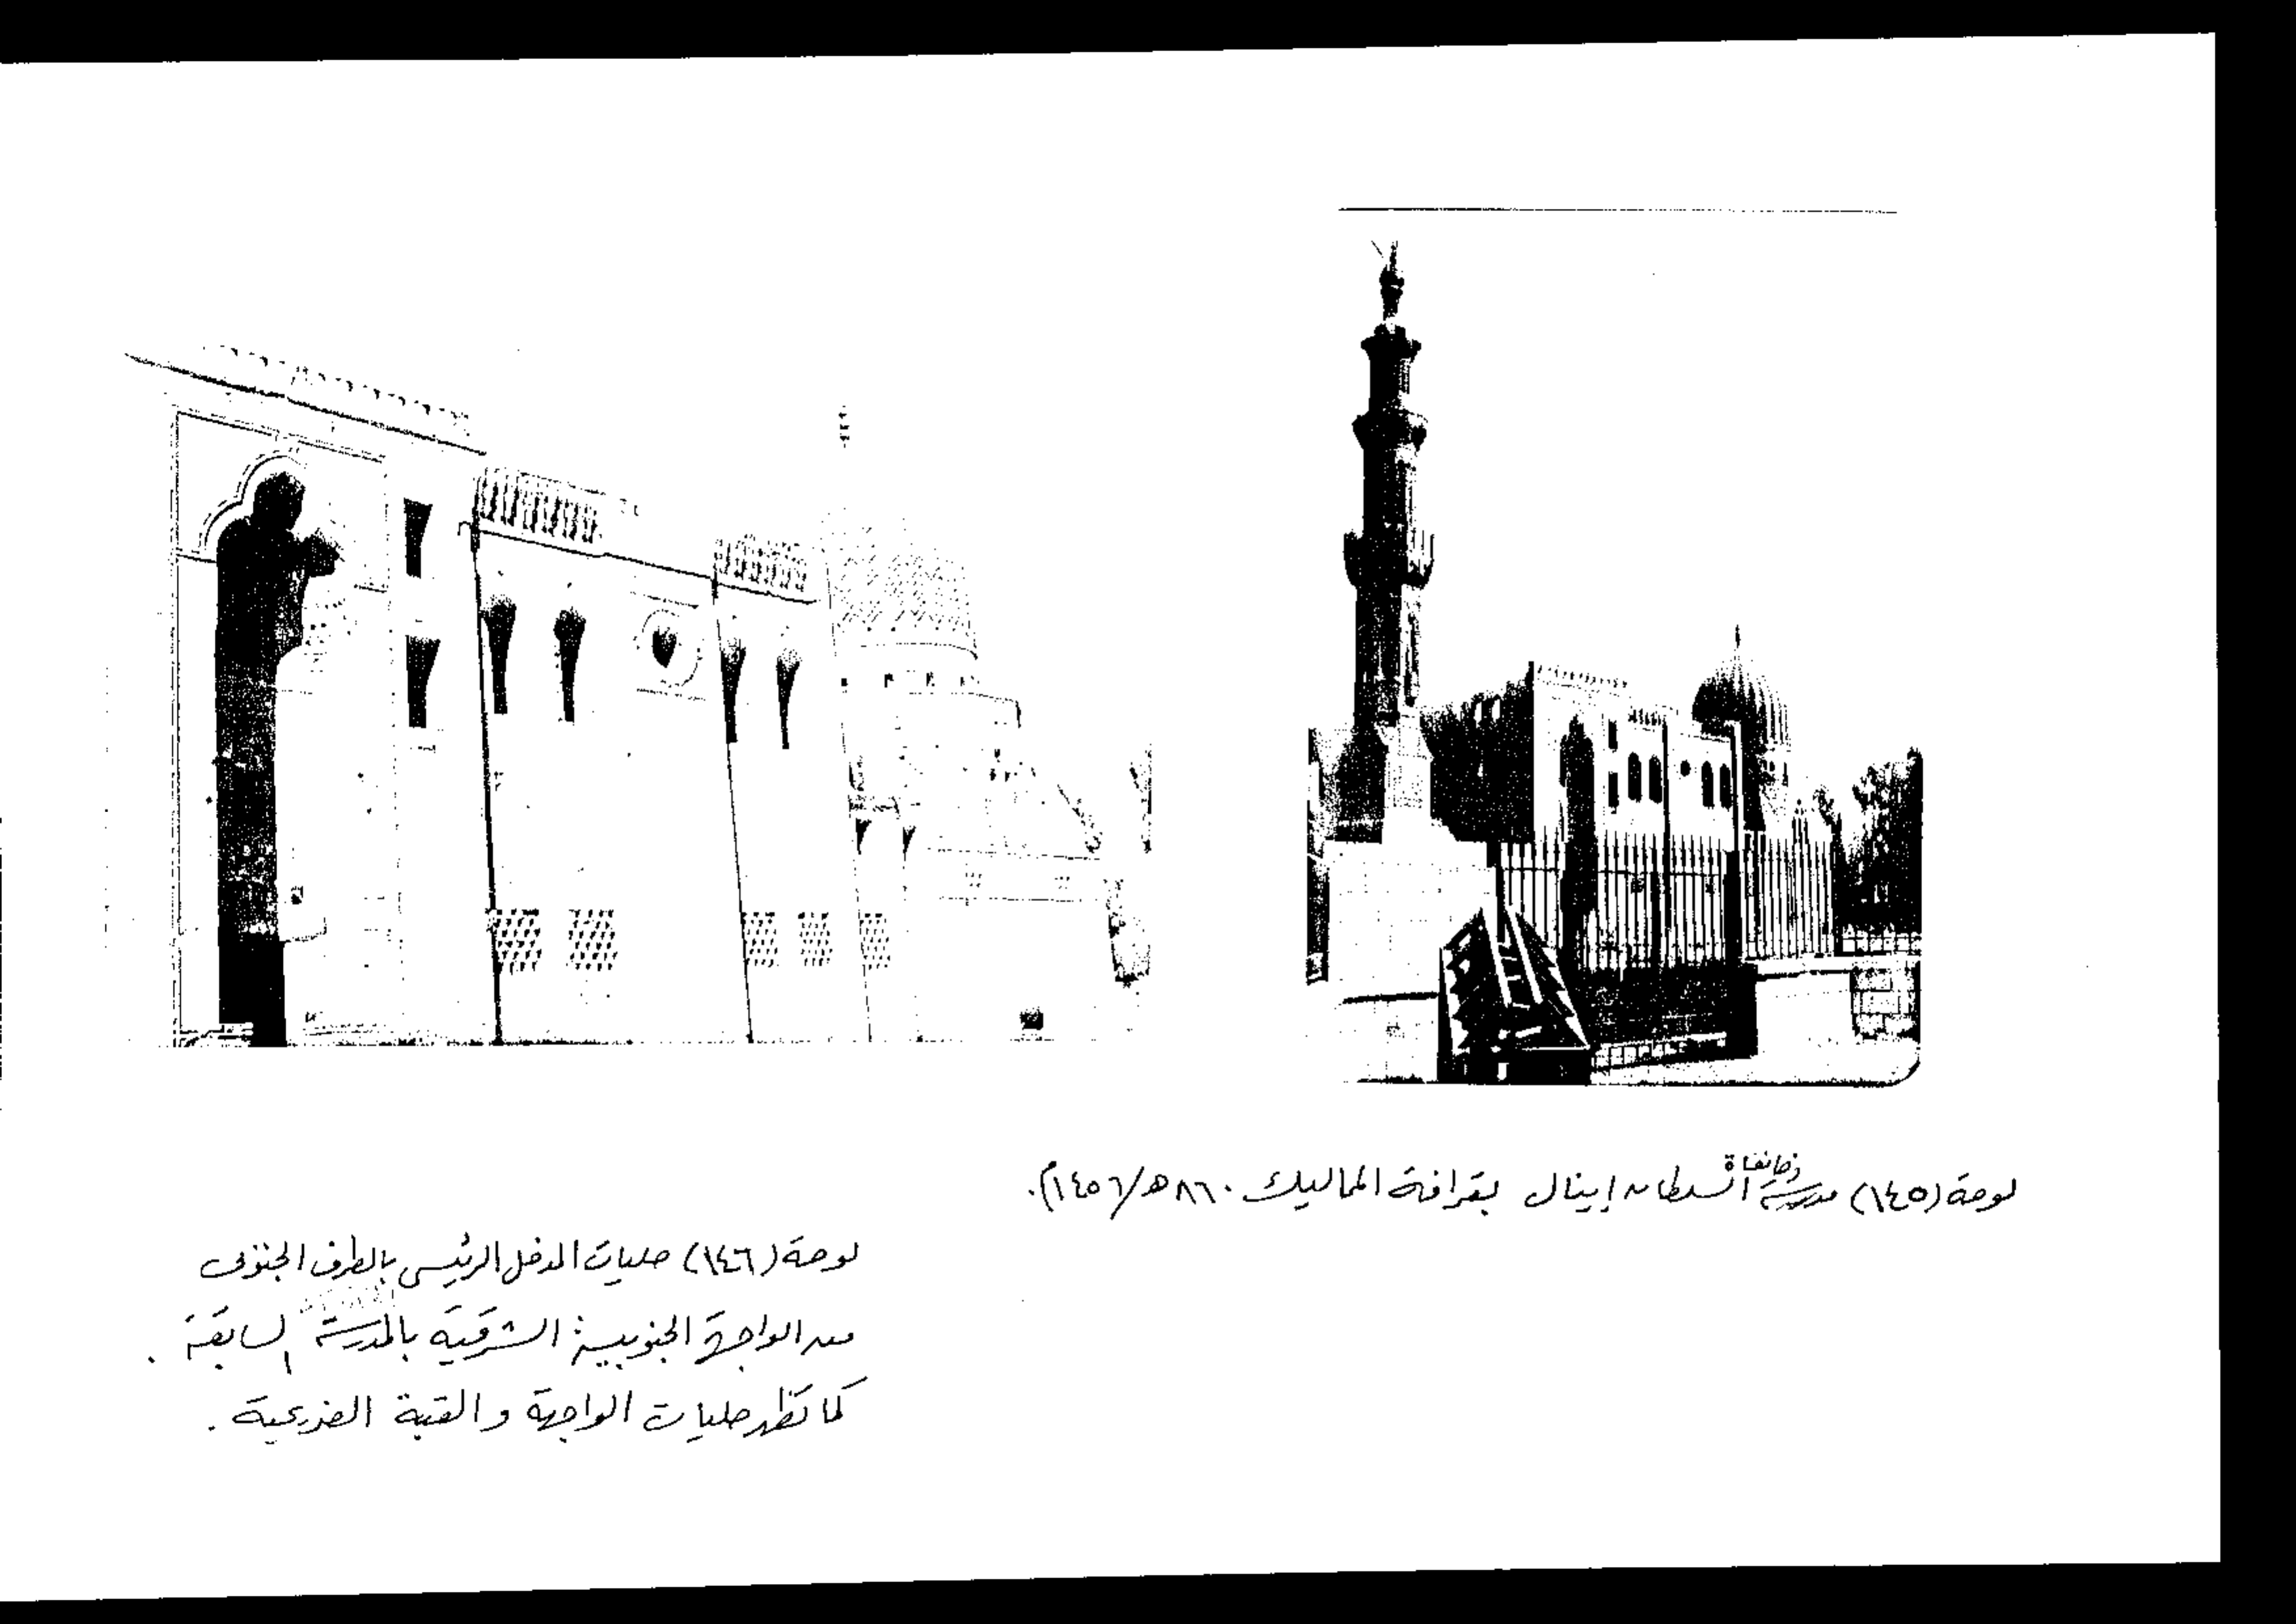 لوحة (١٤٥) مدرسة وخانقاة السلطان إينال بقرافة المماليك ٨٦٠هـ/١٤٥٦م).
لوحة (١٤٦) حليات المدخل الرئيسى بالطرف الجنوبى
من الواجهة الجنوبية الشرقية بالمدرسة السابقة .
كما تظهر حليات الواجهة والقبة الضريحية .